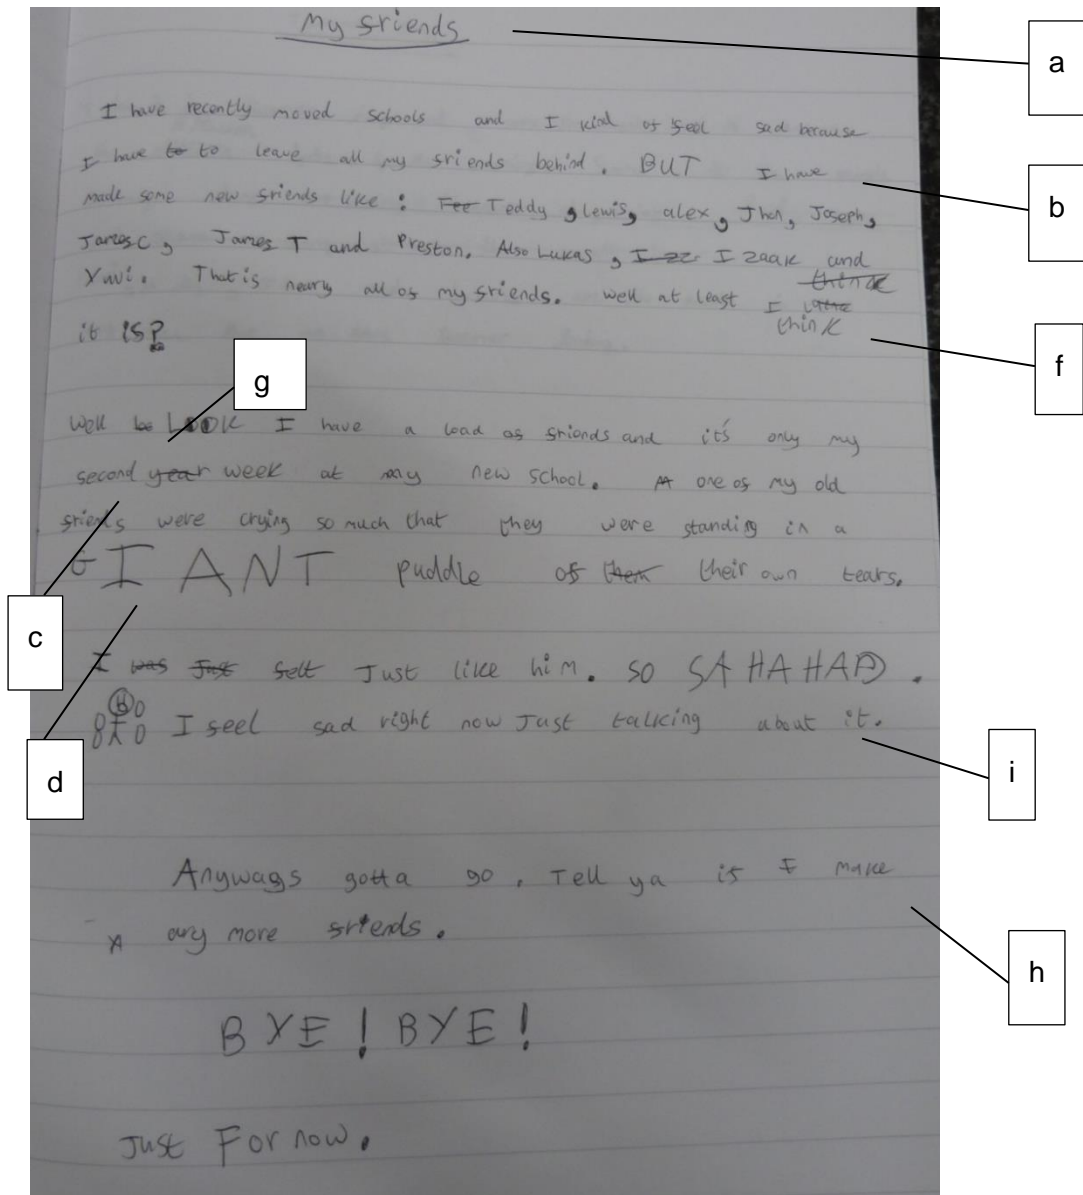 My friends
a
I have recently moved schools and I kind of feel sad because
I have to to leave all my friends behind. BUT I have
b
made some new friends like: Fee Teddy, lewis, alex, Jhon, Joseph,
James C, James T and Preston. Also Lukas, I zz I zaak and
Yuvi. That is nearly all of my friends. well at least I think
think
it is?
f
g
Well lo LOOK I have a load of friends and it's only my
second year week at my new school. A one of my old
friends were crying so much that they were standing in a
GIANT puddle of them their own tears.
c
I was just felt Just like him. so SAHAHAD.
I feel sad right now Just talking about it.
d
i
Anyways gotta go. Tell ya if I make
any more friends.
h
BYE! BYE!
Just For now.